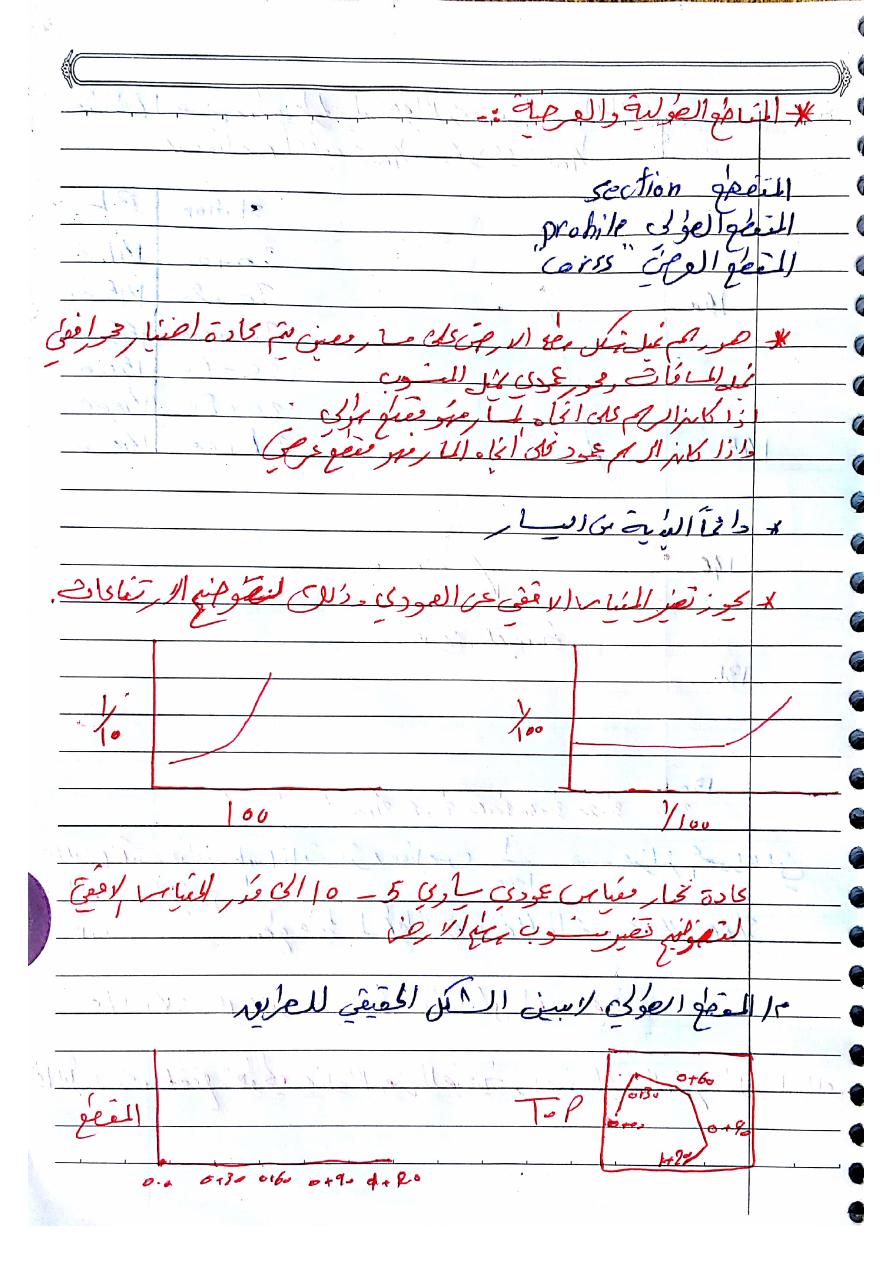 * المقاطع الطولية والعرضية :-
المقطع section
المقطع الطولي profile
المقطع العرضي "corss"
* هو رسم يمثل شكل سطح الارض على مسار معين يتم عادة اختيار محور افقي
يمثل المسافات ومحور عمودي يمثل المنسوب
اذا كان الرسم على اتجاه المسار فهو مقطع طولي
واذا كان الرسم عمود على اتجاه المسار فهو مقطع عرضي
* دائماً البداية من اليسار
* يجوز تغير المقياس الافقي عن العمودي وذلك لتوضيح الارتفاعات.
1/10
1/100
100
1/100
عادة نختار مقياس عمودي يساوي 5 - 10 الى قدر المقياس الافقي
لتوضيح تغير منسوب سطح الارض
م/ المقطع الطولي لا يبين الشكل الحقيقي للطريق
المقطع
0+30 0+60 0+90
ToP
0+60
0+30
0+90
1+20